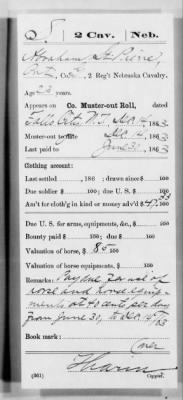 S | 2 Cav. | Neb.
Abraham St Pierre
Pvt, Co. C, 2 Reg't Nebraska Cavalry.
Age 23 years.
Appears on Co. Muster-out Roll, dated
Falls City N.T., Dec 14, 1863
Muster-out to date Dec 14, 1863
Last paid to June 30, 1863
Clothing account:
Last settled , 186 ; drawn since $ 100
Due soldier $ 100; due U. S. $ 100
Am't for cloth'g in kind or money adv'd $ 47 33/100
Due U. S. for arms, equipments, &c., $ 100
Bounty paid $ 100; due $ 100
Valuation of horse, $ 85 100
Valuation of horse equipments, $ 100
Remarks: Pay due for use of
horse and horse equip-
ments at 40 cents per day
from June 30, to Dec 14/63
Book mark:
over
(361) Copyist.